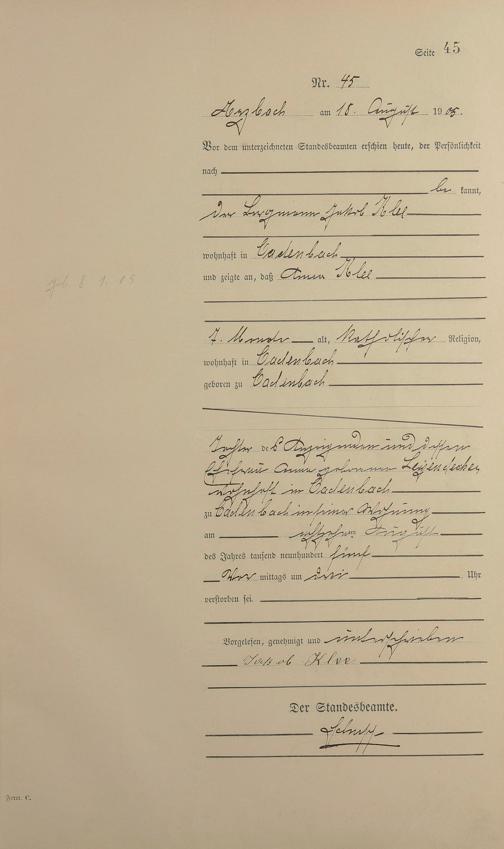 Seite 45
Nr. 45
Arzbach am 18. August 1905.
Vor dem unterzeichneten Standesbeamten erschien heute, der Persönlichkeit
nach
be kannt,
der Bergmann Jakob Klee
wohnhaft in Cadenbach
und zeigte an, daß Anna Klee
geb. 8 1. 05
7. Monate alt, katholischer Religion,
wohnhaft in Cadenbach
geboren zu Cadenbach
Tochter des Anzeigenden und dessen
Ehefrau Anna geborenen
wohnhaft in Cadenbach
zu Cadenbach in seiner Wohnung
am August
des Jahres tausend neunhundert fünf
Vor mittags um drei Uhr
verstorben sei.
Vorgelesen, genehmigt und unterschrieben
Jakob Klee
Der Standesbeamte.
Form. C.